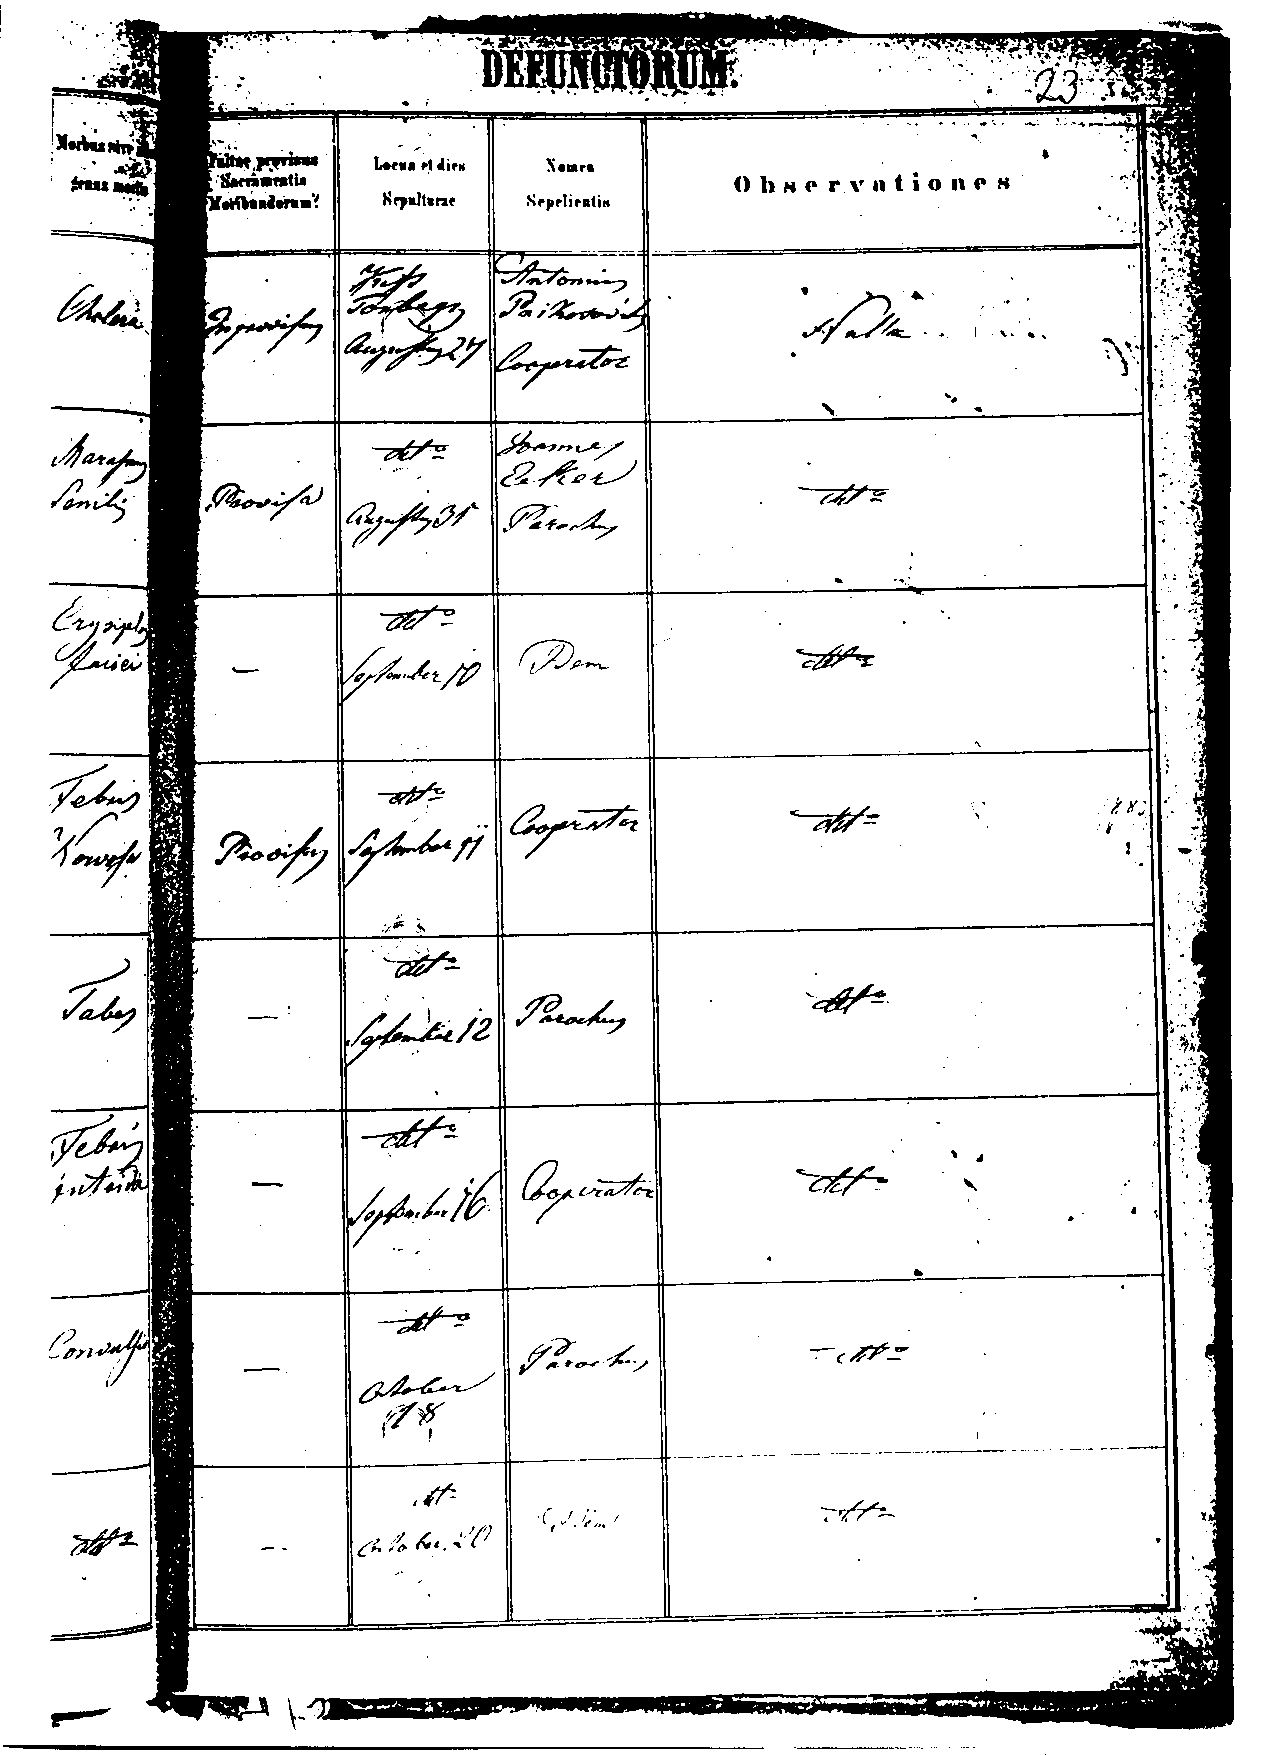 DEFUNCTORUM.
23
Morbus sive
genus mortis
Fuitne provisus
Sacramentis
Moribundorum?
Locus et dies
Sepulturae
Nomen
Sepelientis
Observationes
Cholera
Improvisus
Augustus 27
Antonius
Cooperator
Nulla
Marasmus
Senilis
Provisa
detto
Augustus 31
Joannes
Ecker
Parochus
detto
faciei
—
detto
September 10
Idem
detto
Febris
Provisus
detto
September 11
Cooperator
detto
Tabes
—
detto
September 12
Parochus
detto
Febris
—
detto
September 16
Cooperator
detto
Convulsio
—
detto
October
18
Parochus
detto
detto
—
detto
October 20
detto